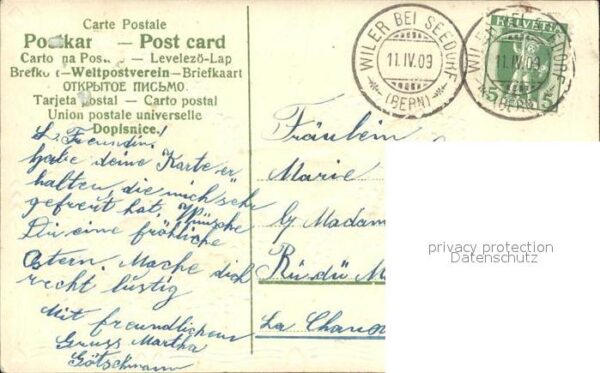 Carte Postale
Postkar — Post card
Carto na Pos — Levelező-Lap
Brefko t — Weltpostverein — Briefkaart
ОТКРЫТОЕ ПИСЬМО
Tarjeta postal — Carto postal
Union postale universelle
Dopisnice.
WILER BEI SEEDORF
11.IV.09
(BERN)
HELVETIA
WILER BEI SEEDORF
11.IV.09
(BERN)
5 5
L. Freundin!
habe deine Karte er
halten, die mich sehr
gefreut hat, Wünsche
Dir eine fröhliche
Ostern. Mache dich
recht lustig
Mit freundlichem
Gruss Martha
Götschmann
Fräulein
Marie
bz Madam
Rü dü M
La Chau
privacy protection
Datenschutz